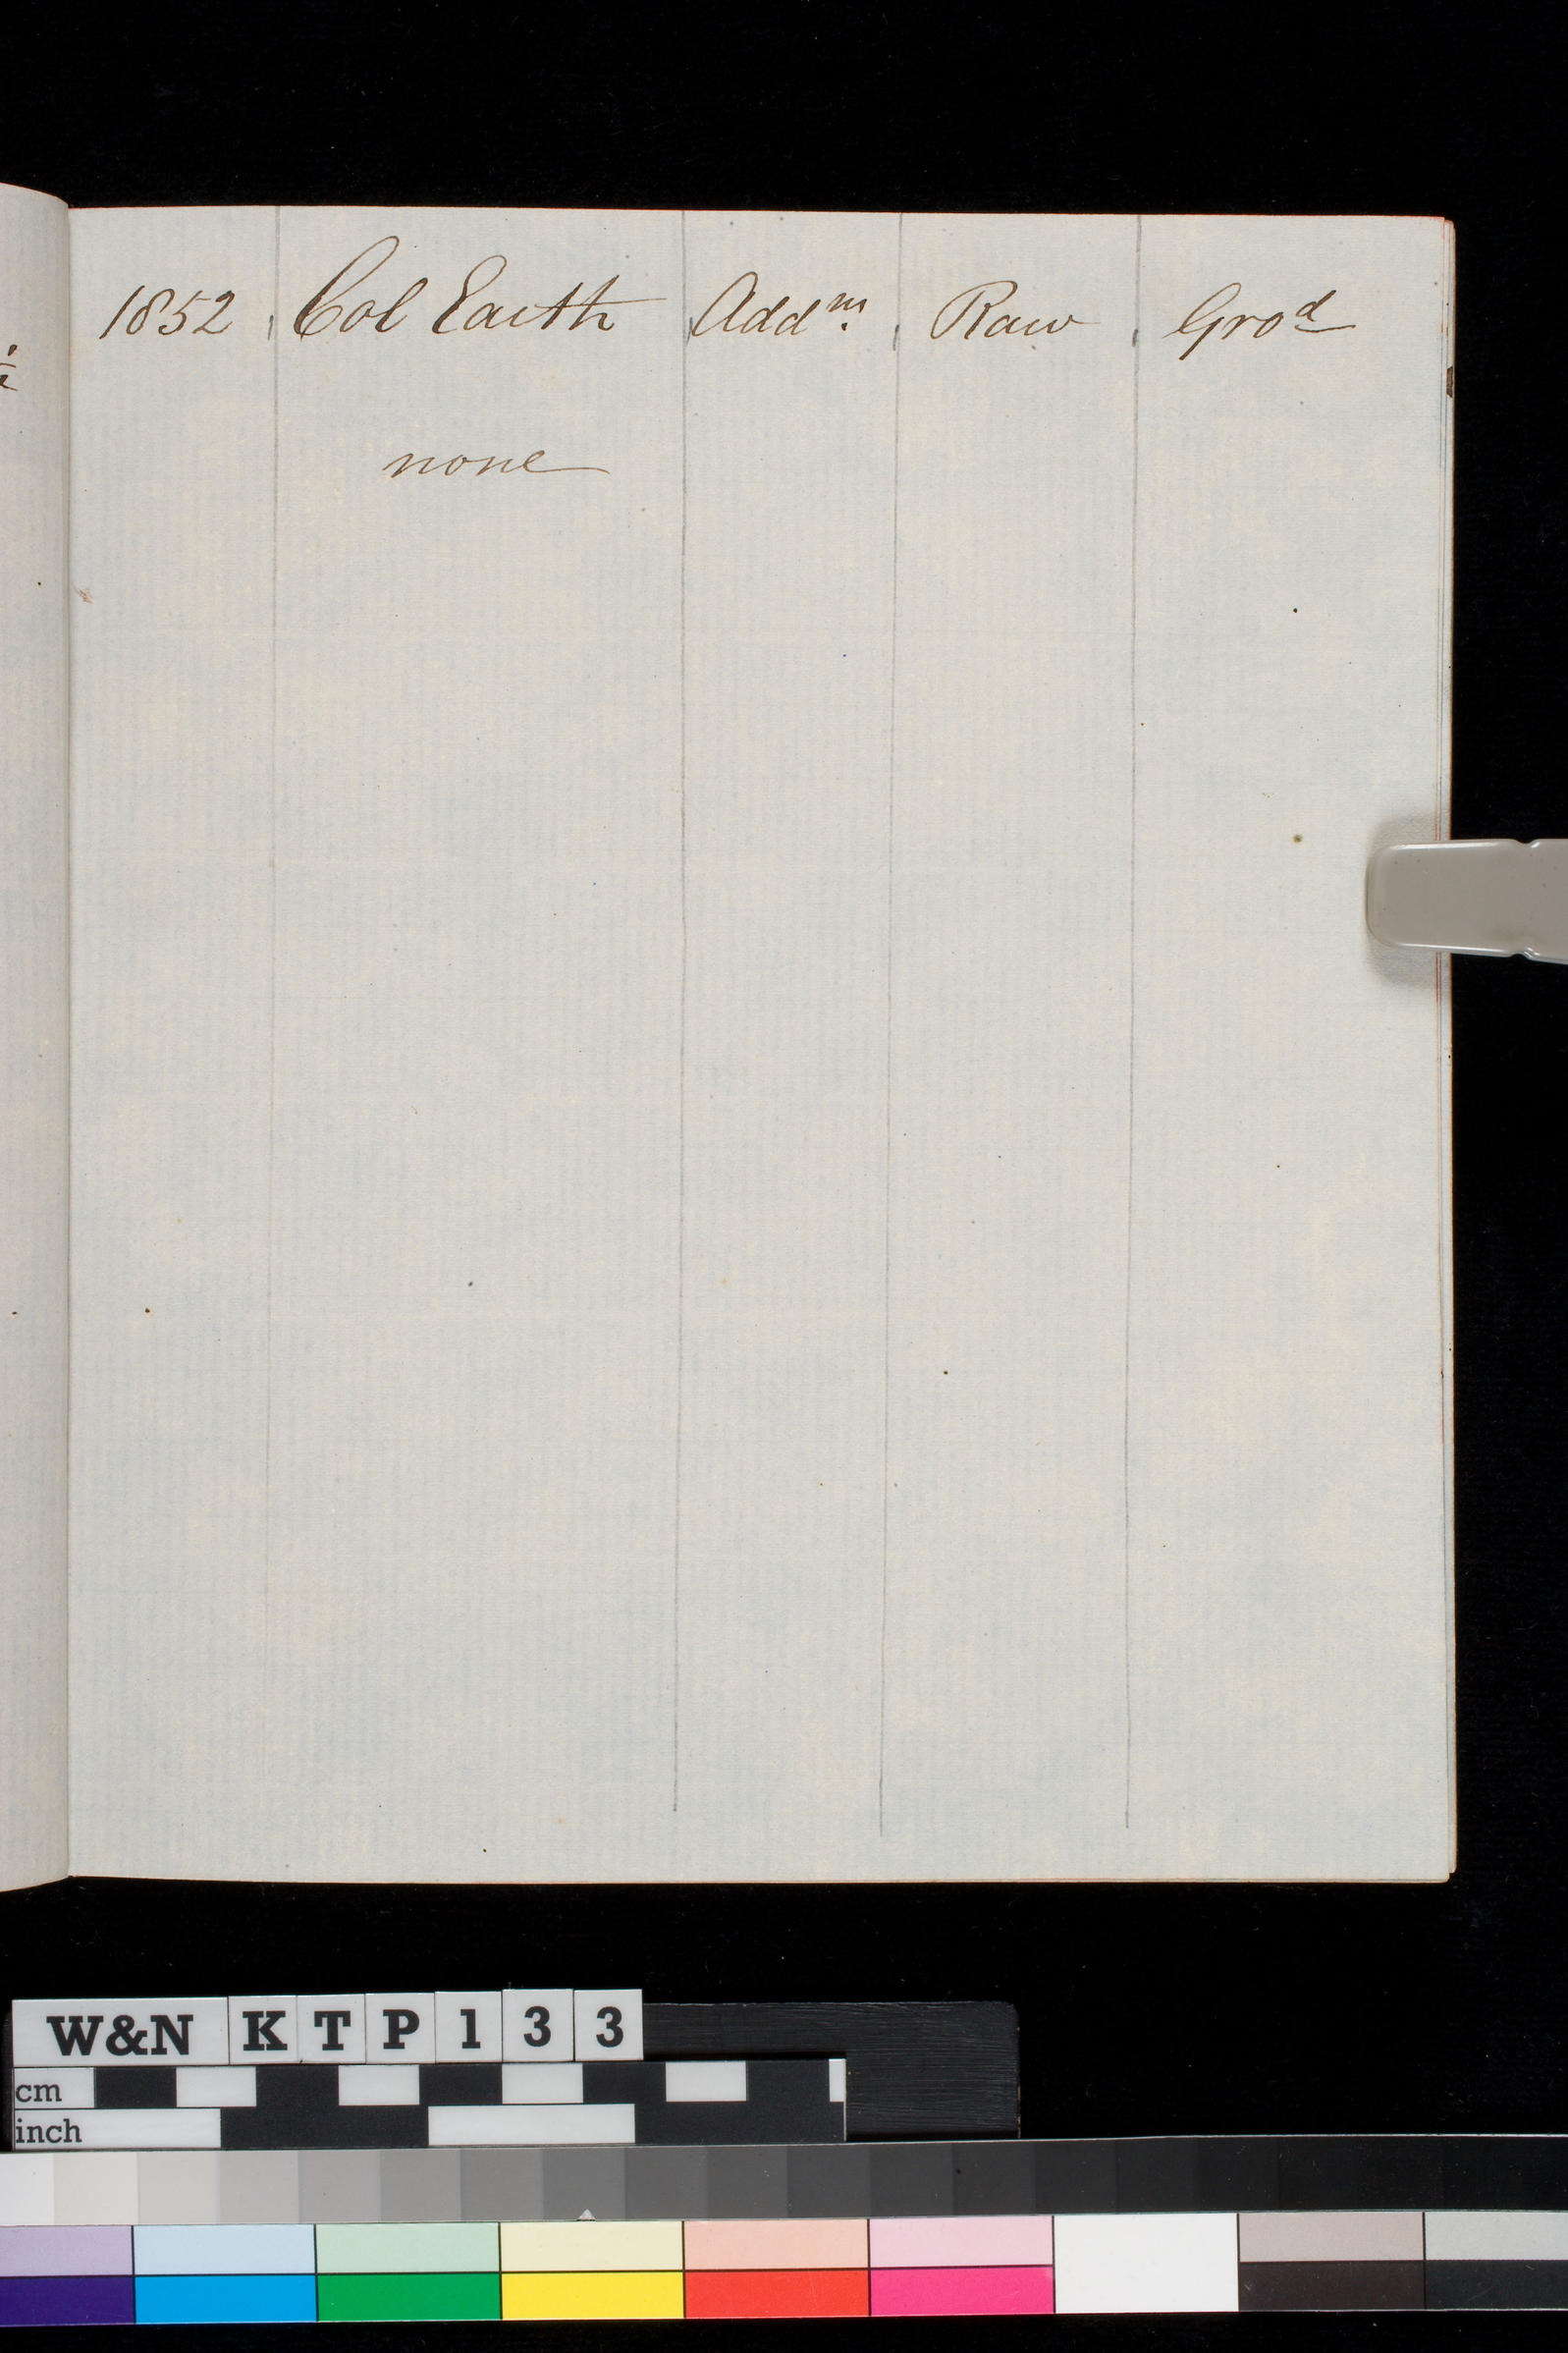 1852 Col Earth Addns. Raw Grod
none
W&N K T P 1 3 3
cm
inch